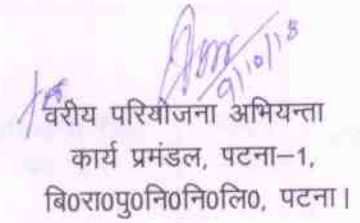 9/10/18
वरीय परियोजना अभियन्ता
कार्य प्रमंडल, पटना–1,
बि0रा0पु0नि0नि0लि0, पटना।